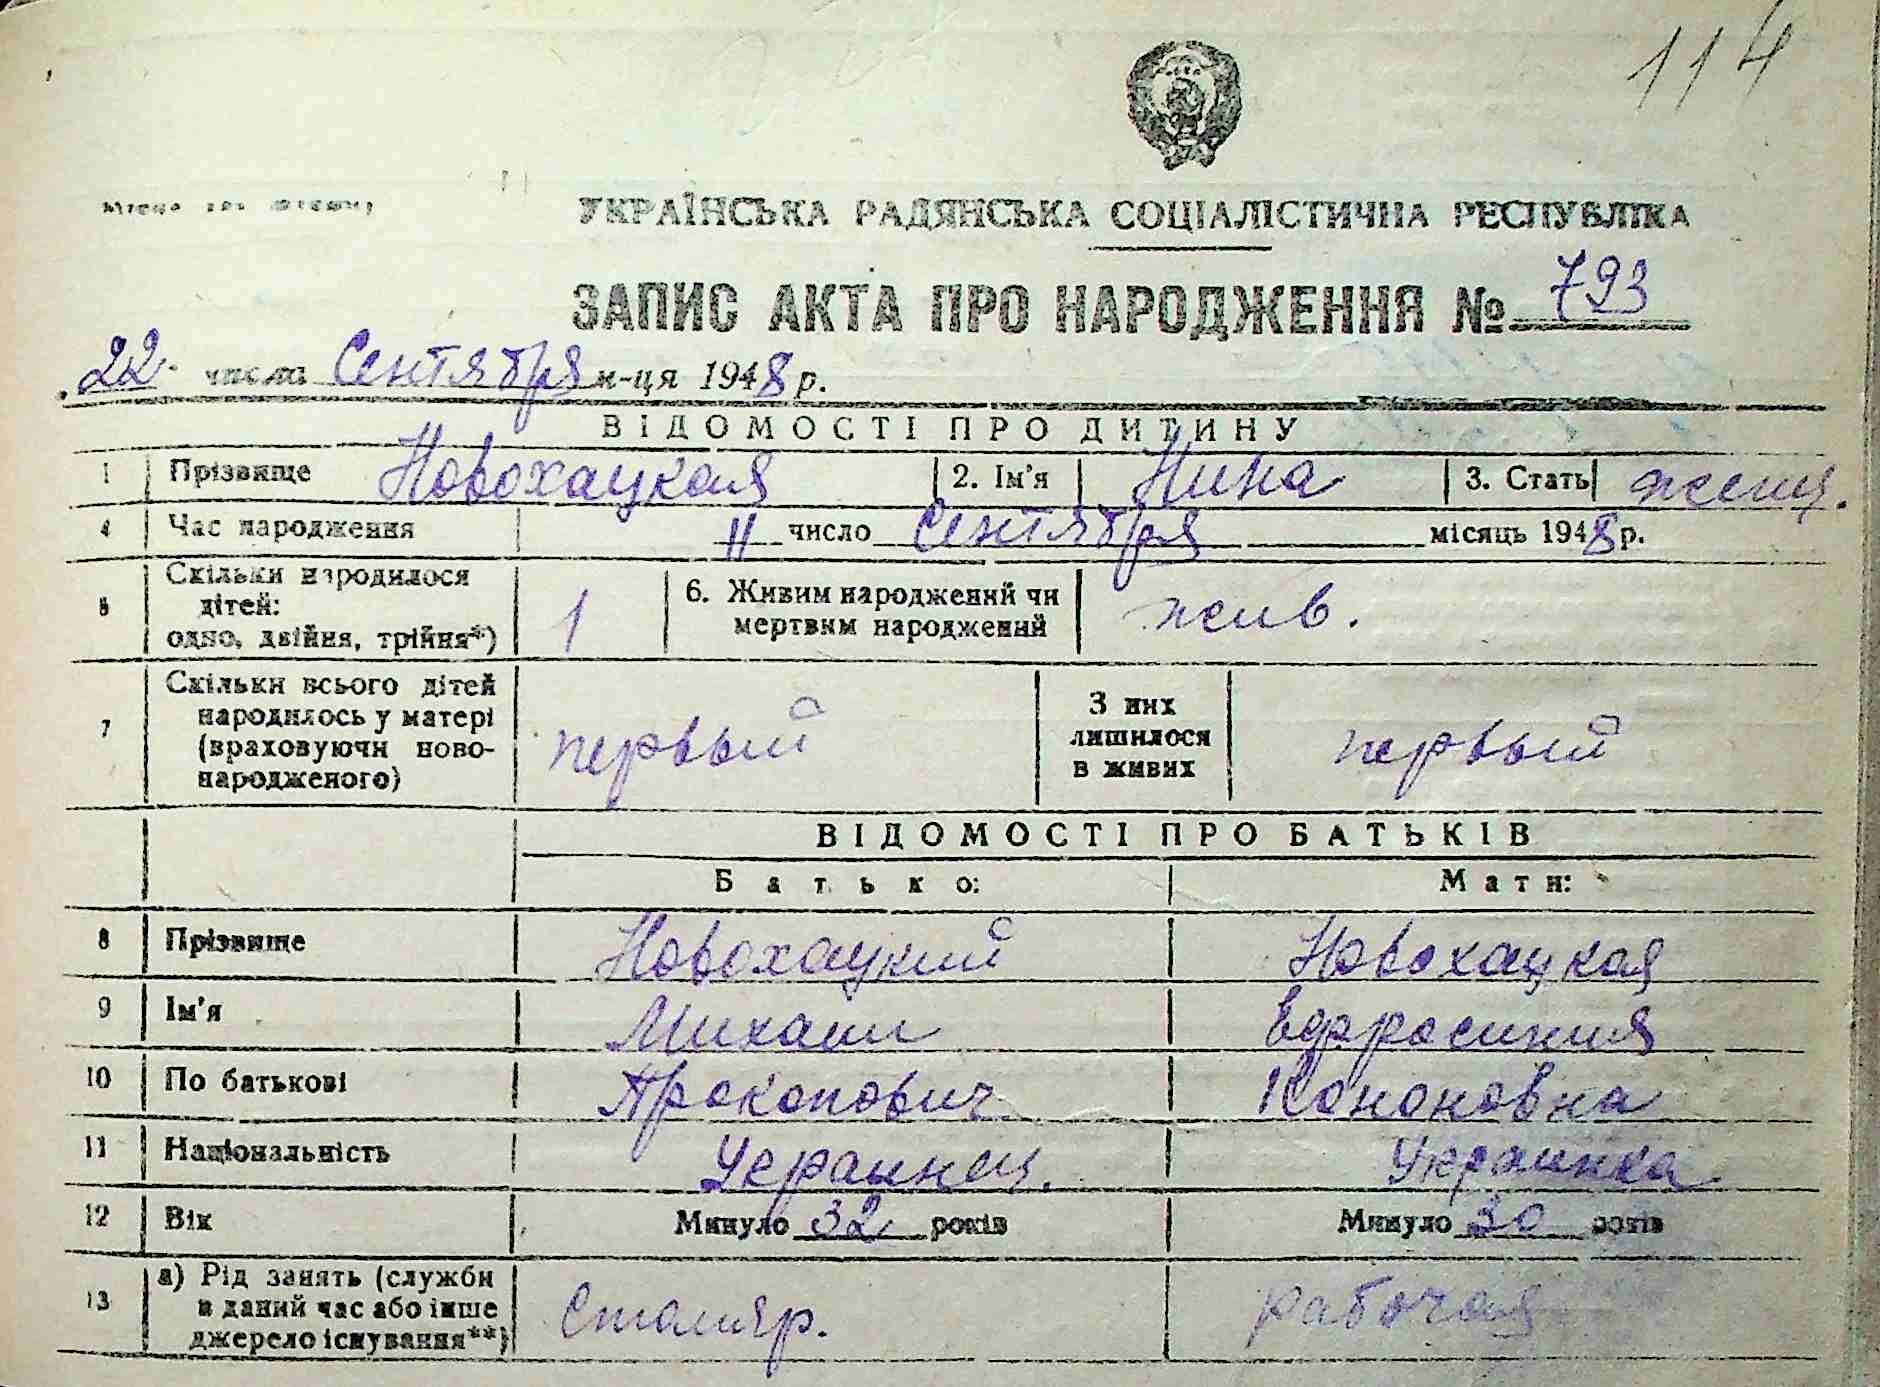 114
Місце для штампу
УКРАЇНСЬКА РАДЯНСЬКА СОЦІАЛІСТИЧНА РЕСПУБЛІКА
ЗАПИС АКТА ПРО НАРОДЖЕННЯ № 793
22 числа Сентября м-ця 1948 р.
ВІДОМОСТІ ПРО ДИТИНУ
1 Прізвище Новохацкая 2. Ім'я Нина 3. Стать женщ.
4 Час народження 11 число Сентября місяць 1948 р.
5 Скільки народилося дітей: одно, двійня, трійня*) 1 6. Живим народжений чи мертвим народжений жив.
7 Скільки всього дітей народилось у матері (враховуючи ново-народженого) первый З них лишилося в живих первый
ВІДОМОСТІ ПРО БАТЬКІВ
Батько: Мати:
8 Прізвище Новохацкий Новохацкая
9 Ім'я Михаил Ефросиния
10 По батькові Прокопович Кононовна
11 Національність Украинец. Украинка
12 Вік Минуло 32 років Минуло 30 років
13 а) Рід занять (служби в даний час або інше джерело існування**) Столяр. рабочая